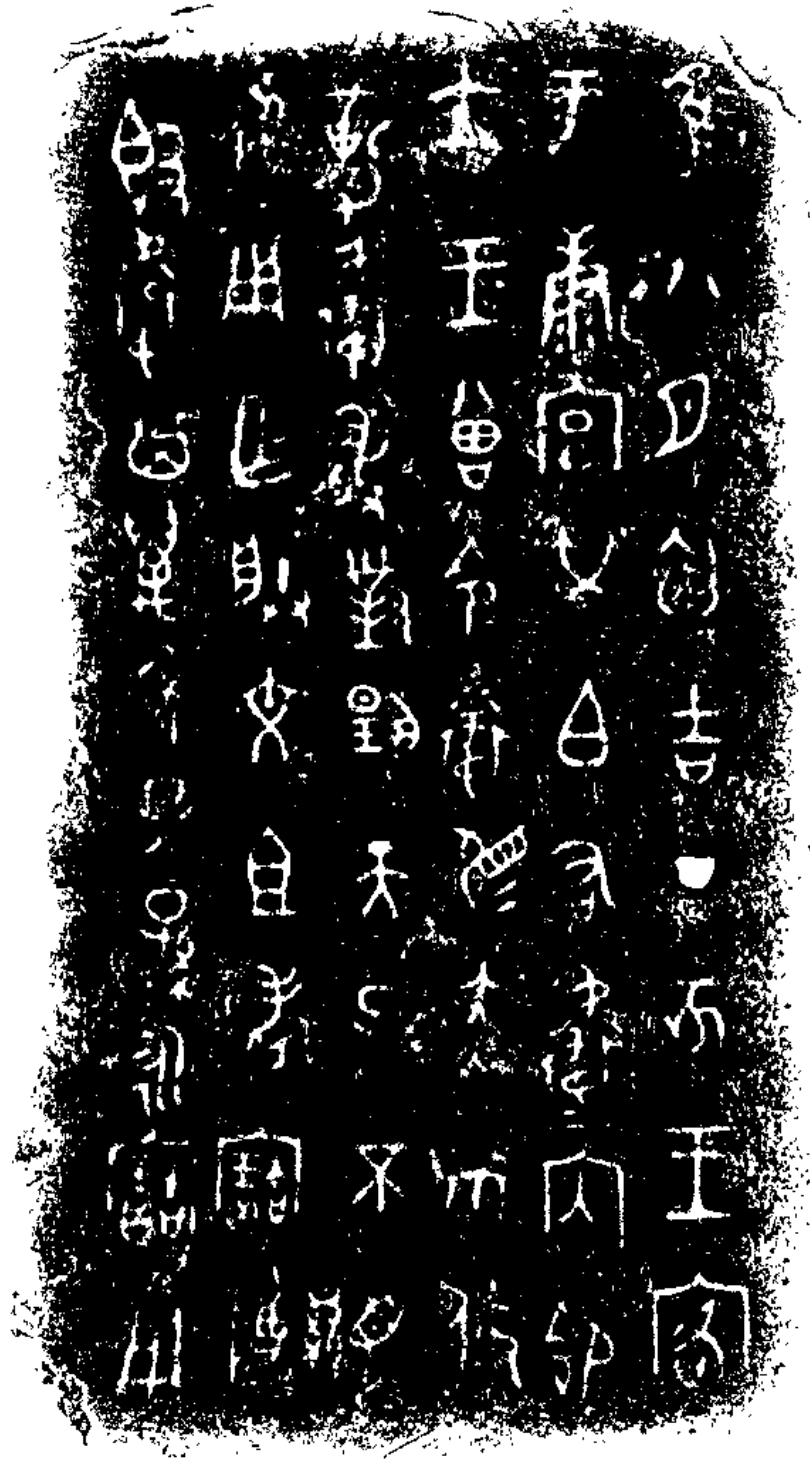 隹八月初吉丁亥王客
于康宮焚白右衛內即
立王曾令衛易赤巿攸
勒衛敢對揚天子不顯
休用乍朕文且考寶尊
𣪘衛其萬年子子孫孫永寶用